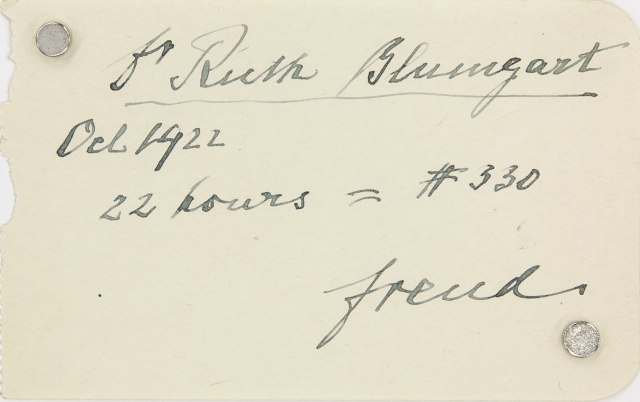 Fr Ruth Blumgart
Oct 1922
22 hours = #330
Freud